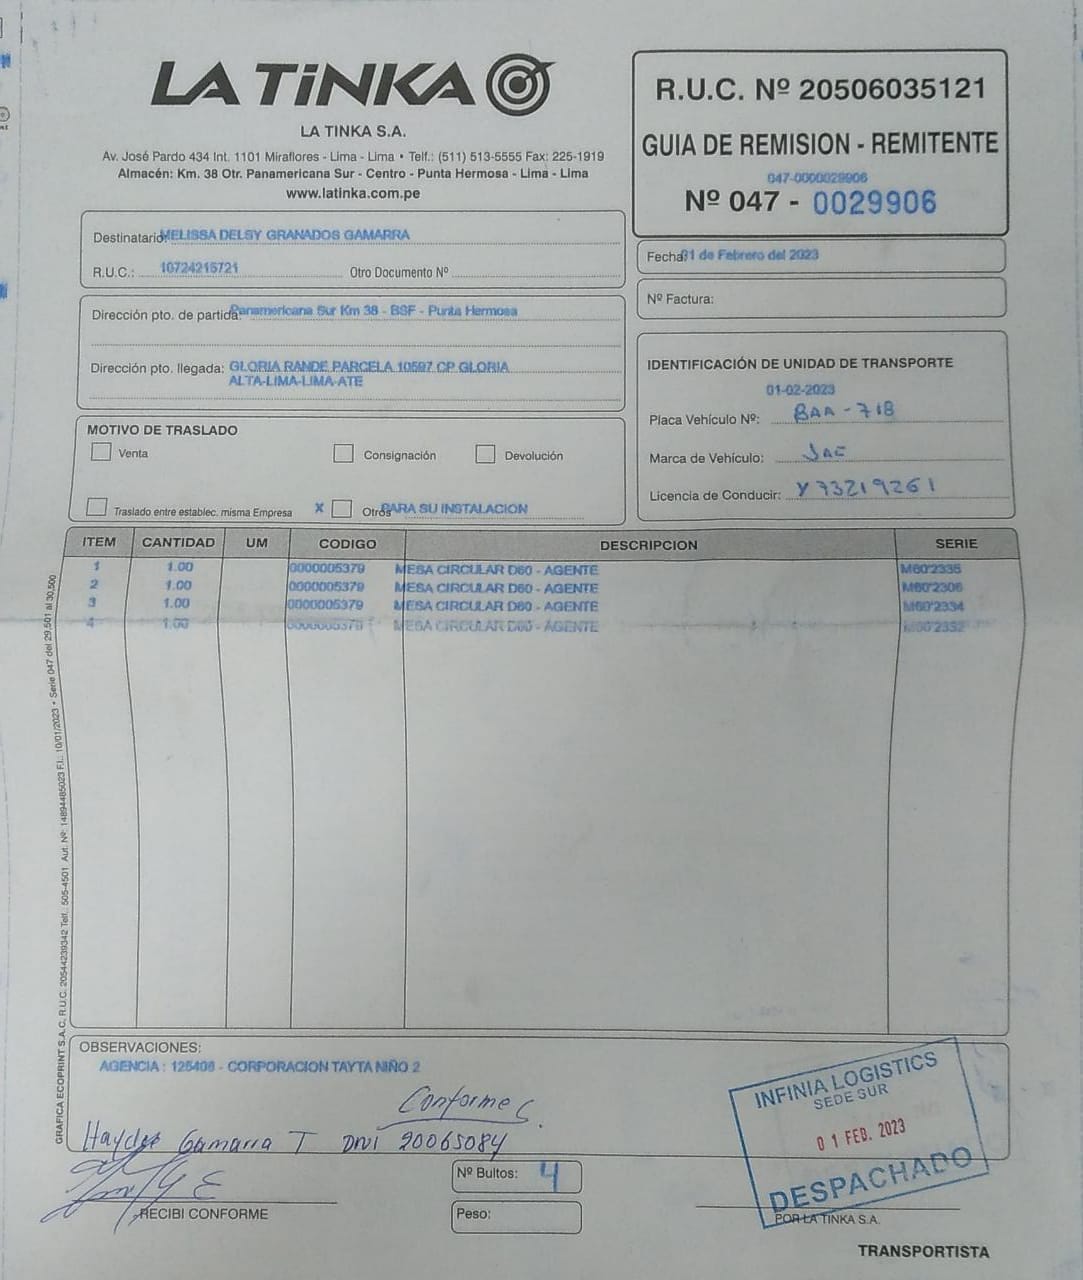 LA TiNKA
LA TINKA S.A.
Av. José Pardo 434 Int. 1101 Miraflores - Lima - Lima • Telf.: (511) 513-5555 Fax: 225-1919
Almacén: Km. 38 Otr. Panamericana Sur - Centro - Punta Hermosa - Lima - Lima
www.latinka.com.pe
R.U.C. Nº 20506035121
GUIA DE REMISION - REMITENTE
047-0000029906
Nº 047 - 0029906
Destinatario: MELISSA DELSY GRANADOS GAMARRA
R.U.C.: 10724215721 Otro Documento Nº
Fecha: 01 de Febrero del 2023
Nº Factura:
Dirección pto. de partida: Panamericana Sur Km 38 - BSF - Punta Hermosa
Dirección pto. llegada: GLORIA RANDE PARCELA 10597 CP GLORIA
ALTA-LIMA-LIMA-ATE
IDENTIFICACIÓN DE UNIDAD DE TRANSPORTE
01-02-2023
Placa Vehículo Nº: BAA-718
Marca de Vehículo: JAC
Licencia de Conducir: Y73219261
MOTIVO DE TRASLADO
Venta Consignación Devolución
Traslado entre establec. misma Empresa X Otros PARA SU INSTALACION
ITEM CANTIDAD UM CODIGO DESCRIPCION SERIE
1 1.00 0000005379 MESA CIRCULAR D60 - AGENTE M60'2335
2 1.00 0000005379 MESA CIRCULAR D60 - AGENTE M60'2306
3 1.00 0000005379 MESA CIRCULAR D60 - AGENTE M60'2334
4 1.00 0000005379 MESA CIRCULAR D60 - AGENTE M60'2352
GRAFICA ECOPRINT S.A.C. R.U.C. 20544239342 Telf.: 505-4501 Aut. Nº: 14894485023 F.I.: 10/01/2023 • Serie 047 del 29,501 al 30,500
OBSERVACIONES:
AGENCIA : 125408 - CORPORACION TAYTA NIÑO 2
Conforme
Gamarra T DNI 20065084
RECIBI CONFORME
Nº Bultos: 4
Peso:
INFINIA LOGISTICS
SEDE SUR
01 FEB. 2023
DESPACHADO
POR LA TINKA S.A.
TRANSPORTISTA